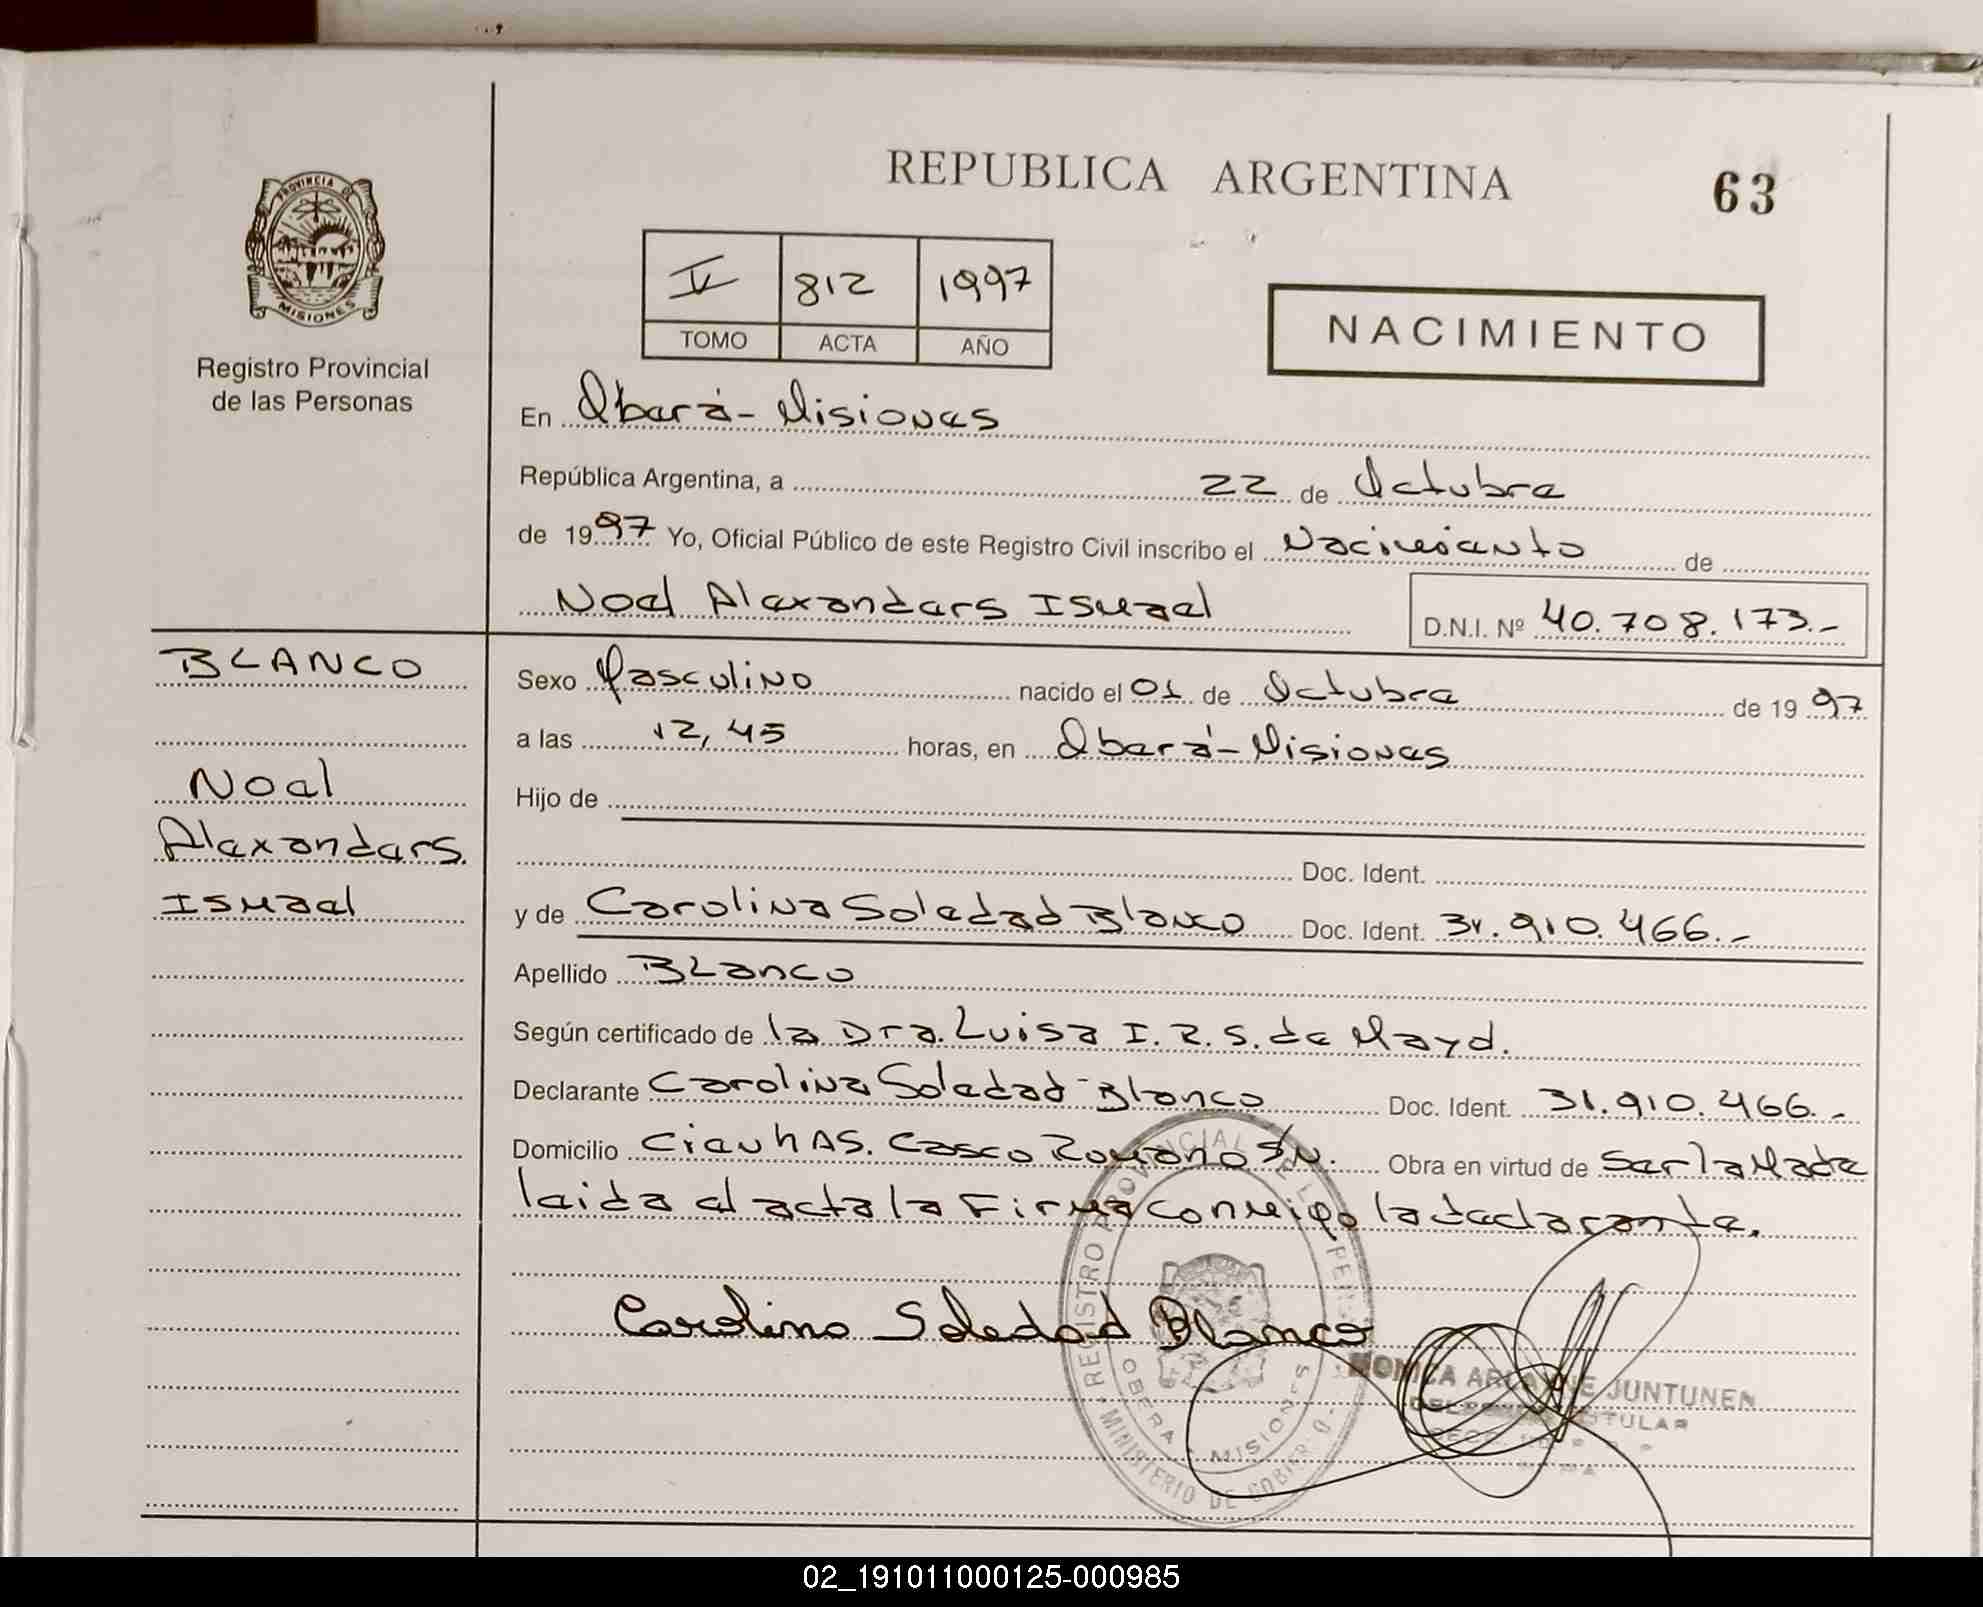 REPUBLICA ARGENTINA
63
PROVINCIA DE
MISIONES
Registro Provincial
de las Personas
812 1997
TOMO ACTA AÑO
NACIMIENTO
En Oberá - Misiones
República Argentina, a 22 de Octubre
de 1997 Yo, Oficial Público de este Registro Civil inscribo el Nacimiento de
Noel Alexanders Ismael
D.N.I. Nº 40.708.173.-
BLANCO
Noel
Alexanders.
Ismael
Sexo Masculino nacido el 01 de Octubre de 1997
a las 12,45 horas, en Oberá - Misiones
Hijo de
Doc. Ident.
y de Carolina Soledad Blanco Doc. Ident. 31.910.466.-
Apellido Blanco
Según certificado de la Dra. Luisa I. R. S. de
Declarante Carolina Soledad Blanco Doc. Ident. 31.910.466.-
Domicilio Cien has. Casco Romano S/N. Obra en virtud de ser la Madre
leida el acta la Firma conmigo la declarante.
Carolina Soledad Blanco
REGISTRO PROVINCIAL DE L PE
OBERA - MISIONES
MINISTERIO DE GOBIER O
MONICA JUNTUNEN
TITULAR
02_191011000125-000985